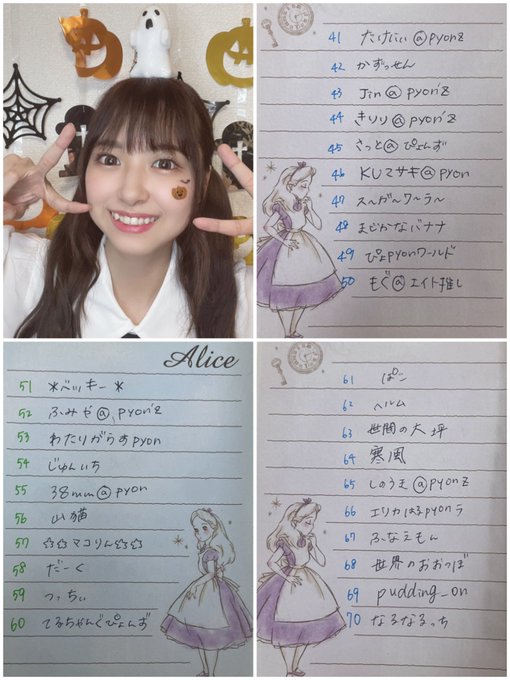 41 たけにぃ@pyonz
42 かずっせん
43 Jin@pyon'z
44 きりり@pyon'z
45 さっと@ぴょんず
46 KUマサキ@pyon
47 ス〜ガ〜ワ〜ラ〜
48 まじかなバナナ
49 ぴょpyonワールド
50 もぐ@エイト推し
Alice
51 *ベッキー*
52 ふみや@pyon'z
53 わたりがらすpyon
54 じゅんいち
55 38mm@pyon
56 山猫
57 ☆☆マコりん☆☆
58 だーく
59 つっちぃ
60 てるちゃんぐぴょんず
61 ぱこ
62 ヘルム
63 世間の大坪
64 寒風
65 しのうき@pyonz
66 エリカはるpyonラ
67 ふなえもん
68 世界のおおつぼ
69 pudding_on
70 なるなるっち